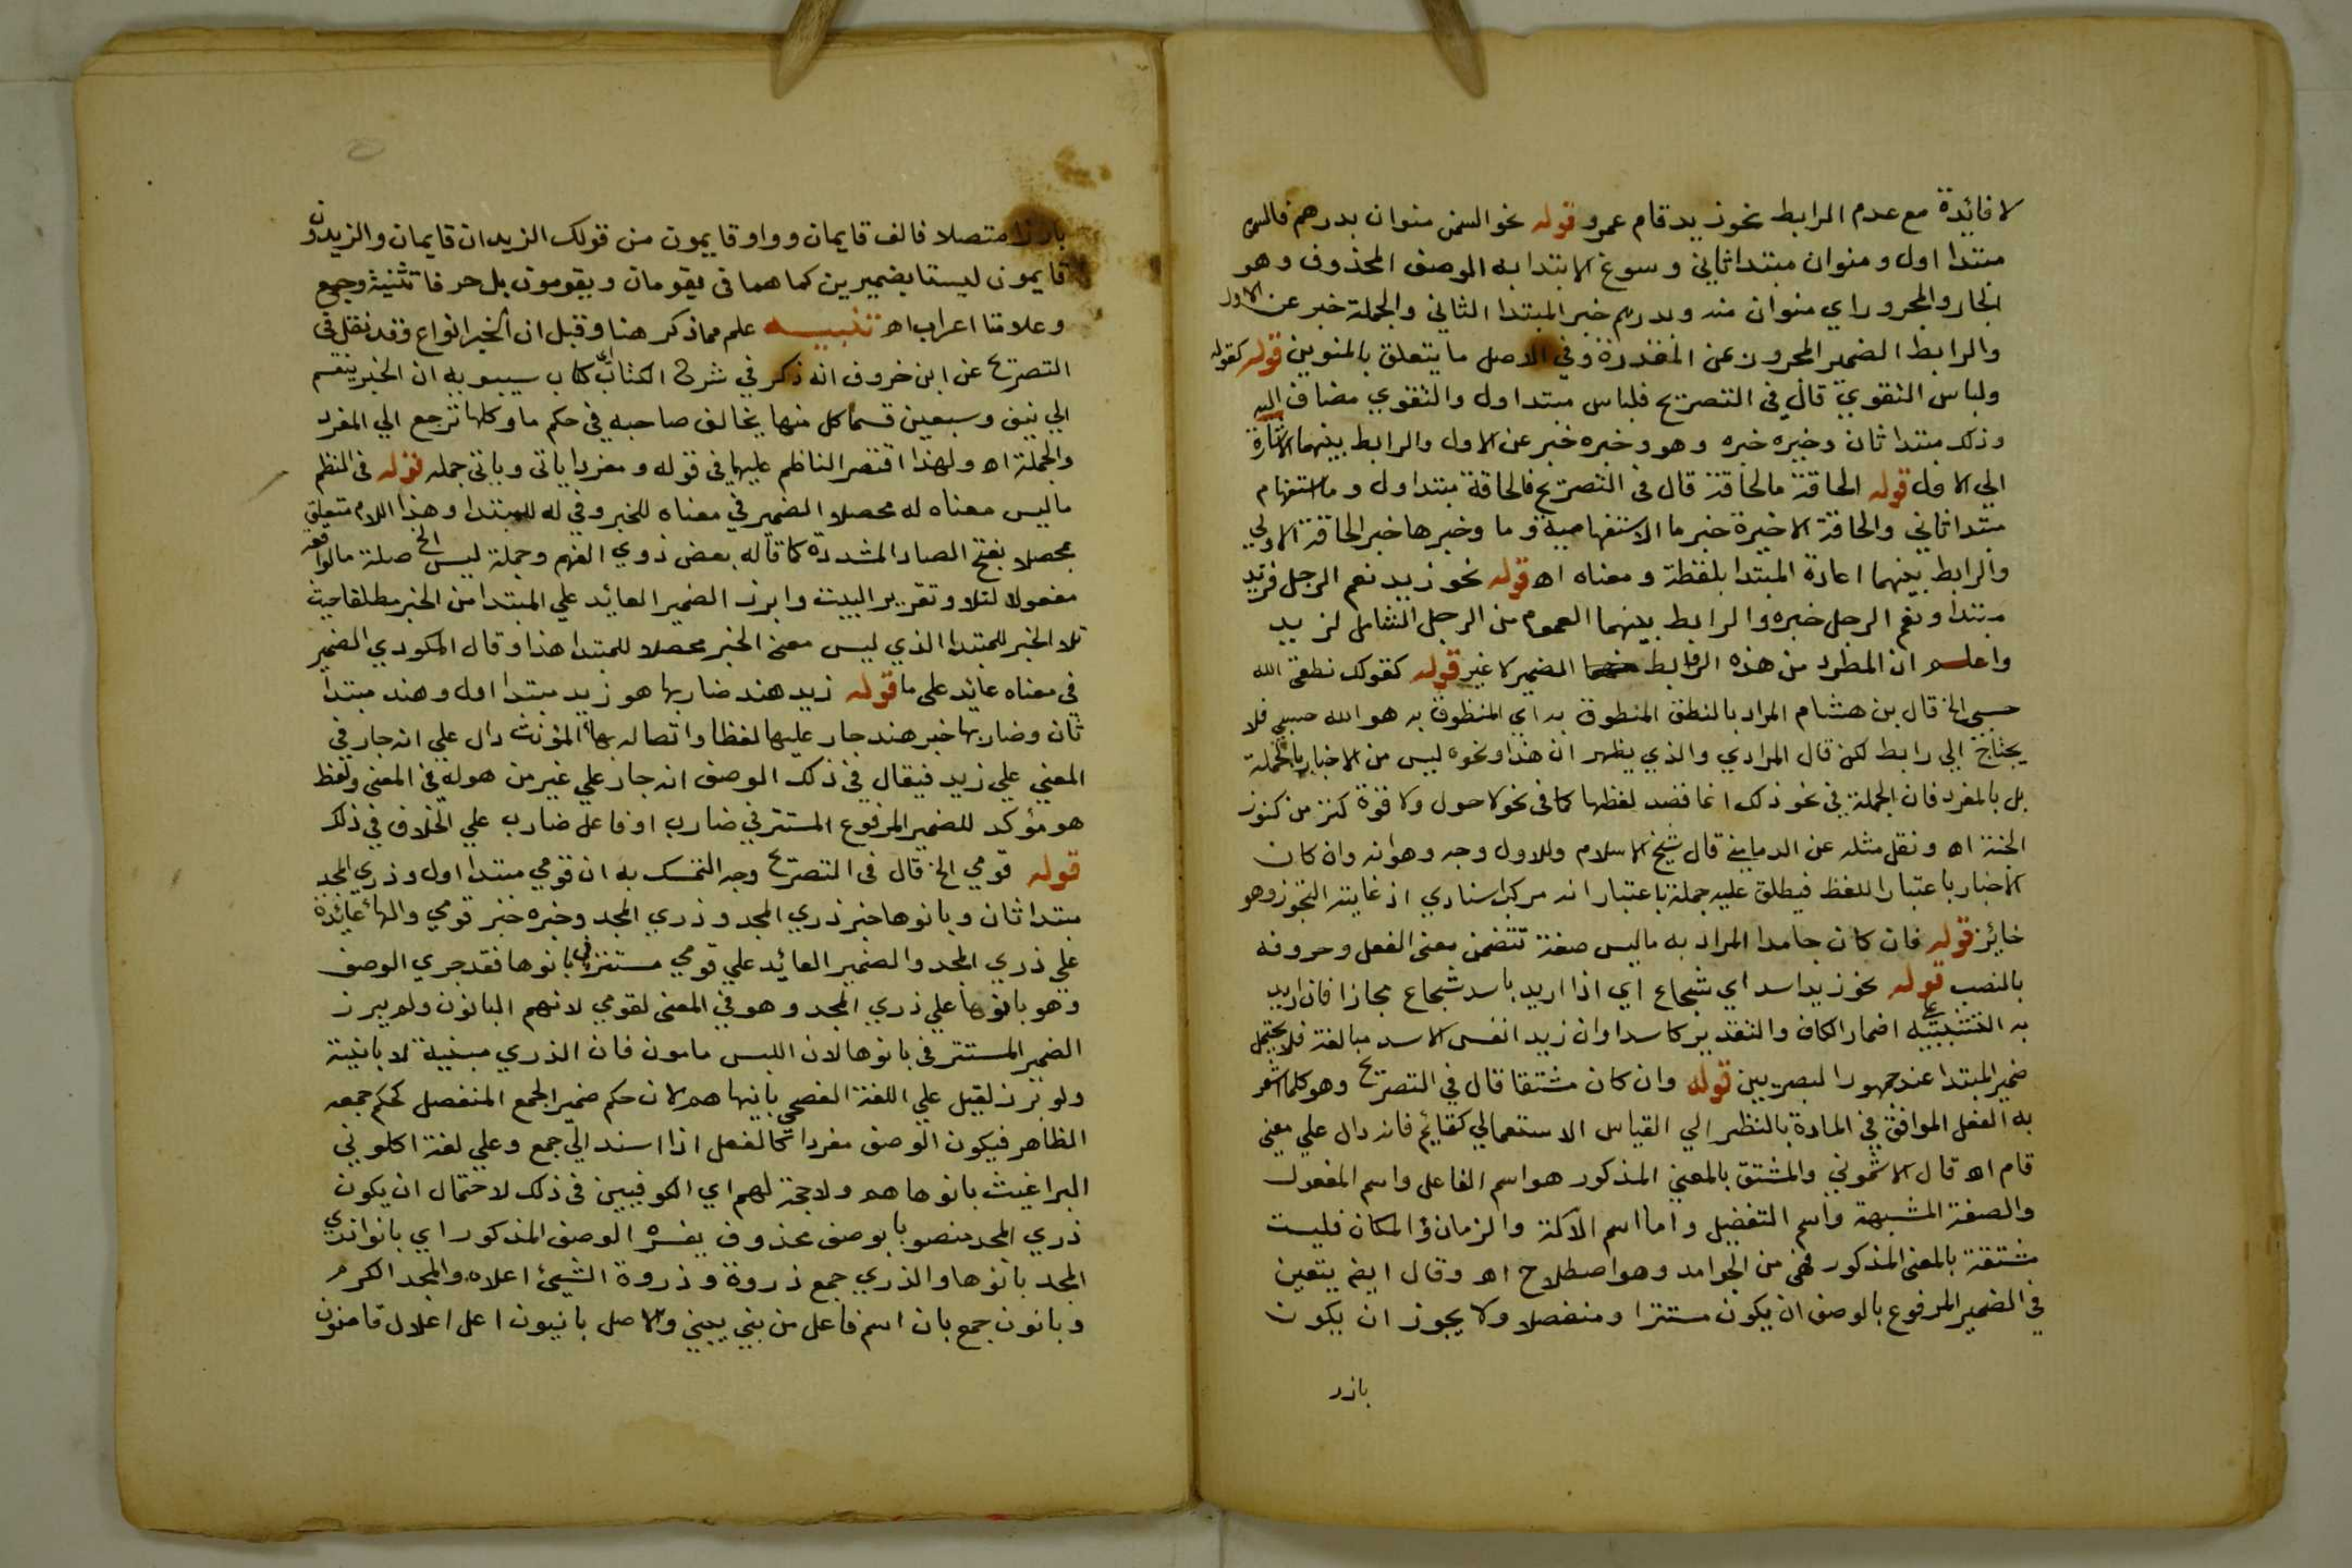 لا فايدة مع عدم الرابط نحو زيد قام عمرو قوله نحو السمن منوان بدرهم فالسمن
مبتدا اول ومنوان مبتدا ثاني وسوغ الابتدا به الوصف المحذوف وهو
الجار والمجرور اي منوان منه وبدرهم خبر المبتدا الثاني والجملة خبر عن الاول
والرابط الضمير المجرور بمن المقدرة وفي الاصل ما يتعلق بالمنوين قوله كقوله
ولباس التقوي قال في التصريح فلباس مبتدا اول والتقوي مضاف اليه
وذلك مبتدا ثان وخيره خبره وهو وخبره خبر عن الاول والرابط بينهما الاشارة
الي الاول قوله الحاقة ما الحاقة قال في التصريح فالحاقة مبتدا اول وما استفهام
مبتدا ثاني والحاقة الاخيرة خبر ما الاستفهامية وما وخبرها خبر الحاقة الاولي
والرابط بينهما اعادة المبتدا بلفظة ومعناه اه قوله نحو زيد نعم الرجل فزيد
مبتدا ونعم الرجل خبره والرابط بينهما العموم من الرجل الشامل لزيد
واعلم ان المطرد من هذه الروابط الضمير لا غير قوله كقولك نطقي الله
حسبي الخ قال بن هشام المراد بالنطق المنطوق به اي المنطوق به هو الله حسبي فلا
يحتاج الي رابط لكن قال المرادي والذي يظهر ان هذا ونحوه ليس من الاخبار بالجملة
بل بالمفرد فان الجملة في نحو ذلك انما قصد لفظها كما في نحو لا حول ولا قوة كنز من كنوز
الجنة اه ونقل مثله عن الدماميني قال شيخ الاسلام وللاول وجه وهو انه وان كان
الاخبار باعتبار اللفظ فيطلق عليه جملة باعتبار انه مركب اسنادي اذ غايته التجوز وهو
جائز قوله فان كان جامدا المراد به ما ليس صفة تتضمن معنى الفعل وحروفه
بالنصب قوله نحو زيد اسد اي شجاع اي اذا اريد باسد شجاع مجازا فان اريد
به التشبيه علي اضمار الكاف والتقدير كاسد او ان زيد انفس الاسد مبالغة فلا يحتمل
ضمير المبتدا عند جمهور البصريين قوله وان كان مشتقا قال في التصريح وهو كلما اشعر
به الفعل الموافق في المادة بالنظر الي القياس الاستعمالي كقايم فانه دال علي معني
قام اه قال الاشموني والمشتق بالمعني المذكور هو اسم الفاعل واسم المفعول
والصفة المشبهة واسم التفضيل واما اسم الآلة والزمان والمكان فليست
مشتقة بالمعنى المذكور فهي من الجوامد وهو اصطلاح اه وقال ايضم يتعين
في الضمير المرفوع بالوصف ان يكون مستترا ومنفصلا ولا يجوز ان يكون
بارز
بارزا متصلا فالف قايمان وواو قايمون من قولك الزيدان قايمان والزيدون
قايمون ليستا بضميرين كما هما في يقومان ويقومون بل حرفا تثنية وجمع
وعلامتا اعراب اه تنبيه علم مما ذكر هنا وقبل ان الخبر انواع وقد نقل في
التصريح عن ابن خروف انه ذكر في شرح الكتاب اي كتاب سيبويه ان الخبر ينقسم
الي نيف وسبعين قسما كل منها يخالف صاحبه في حكم ما وكلها ترجع الي المفرد
والجملة اه ولهذا اقتصر الناظم عليهما في قوله ومفردا ياتي وياتي جمله قوله في النظم
ما ليس معناه له محصلا الضمير في معناه للخبر وفي له للمبتدا وهذا اللام متعلق
بمحصلا بفتح الصاد المشددة كما قاله بعض ذوي الفهم وجملة ليس الخ صلة ما الواقعة
مفعولا لتلا وتقرير البيت وابرز الضمير العائد علي المبتدا من الخبر مطلقا حيث
تلا الخبر للمبتدا الذي ليس معنى الخبر محصلا للمبتدا هذا وقال المكودي الضمير
في معناه عايد علي ما قوله زيد هند ضاربها هو زيد مبتدا اول وهند مبتدا
ثان وضاربها خبر هند جار عليها لفظا واتصاله بهاء المؤنث دال علي انه جار في
المعني علي زيد فيقال في ذلك الوصف انه جار علي غير من هو له في المعنى ولفظ
هو مؤكد للضمير المرفوع المستتر في ضارب او فاعل ضارب علي الخلاف في ذلك
قوله قومي الخ قال في التصريح وجه التمسك به ان قومي مبتدا اول وذري المجد
مبتدا ثان وبانوها خبر ذري المجد وذري المجد وخبره خبر قومي والهاء عائدة
علي ذري المجد والضمير العائد علي قومي مستتر في بانوها فقد جري الوصف
وهو بانوها علي ذري المجد وهو في المعنى لقومي لانهم البانون ولم يبرز
الضمير المستتر في بانوها لان اللبس مامون فان الذري مبنية لا بانية
ولو برز لقيل علي اللغة الفصحي بانيها هم لان حكم ضمير الجمع المنفصل كحكم جمعه
الظاهر فيكون الوصف مفردا كالفعل اذا اسند الي جمع وعلي لغة اكلوني
البراغيث بانوها هم ولا حجة لهم اي الكوفيين في ذلك لاحتمال ان يكون
ذري المجد منصوبا بوصف محذوف يفسره الوصف المذكور اي بانوا ذري
المجد بانوها والذري جمع ذروة وذروة الشيئ اعلاه والمجد الكرم
وبانون جمع بان اسم فاعل من بني يبني والاصل بانيون اعل اعلال قاضون